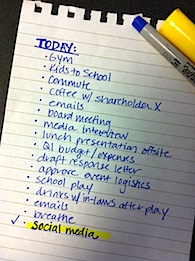 TODAY:
· Gym
· Kids to School
· Commute
· coffee w/ shareholder X
· emails
· board meeting
· media interview
· lunch presentation offsite
· Q1 budget/expenses
· draft response letter
· approve event logistics
· school play
· drinks w/in-laws after play
· emails
· breathe
✓ · social media